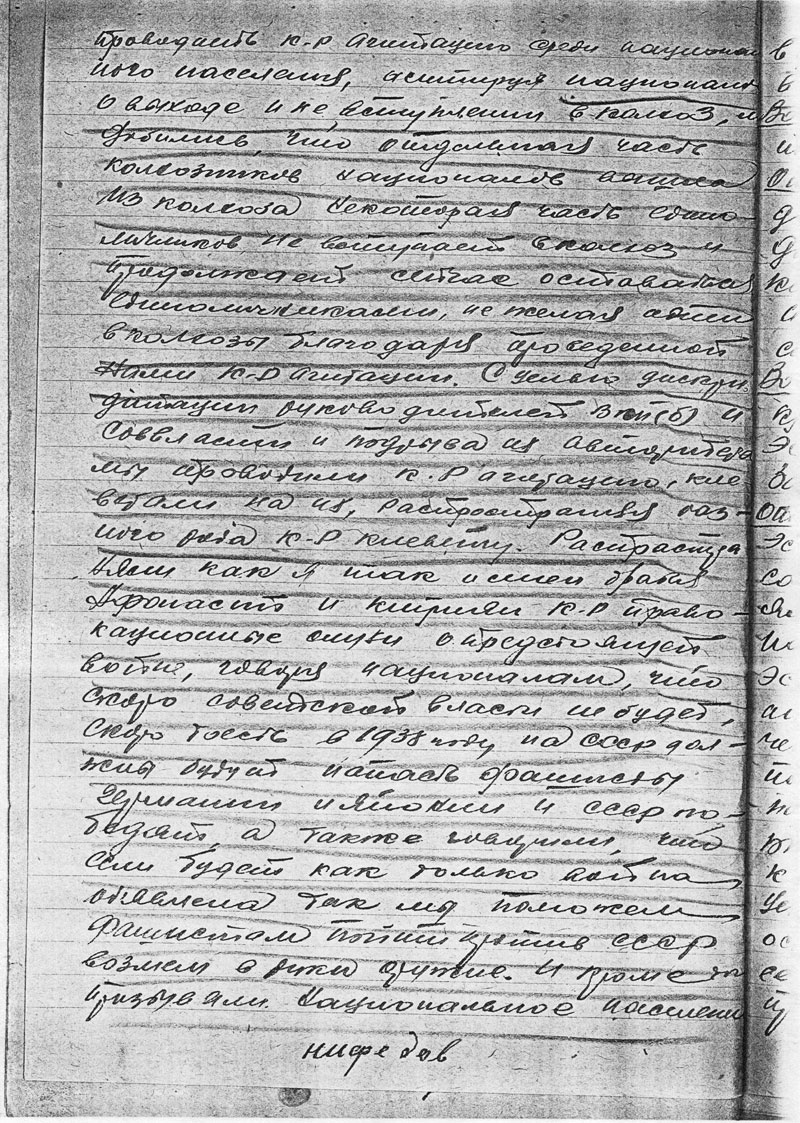 проводить к-р агитацию среди национал
ного населения, агитируя националов
о выходе и не вступлении в колхоз, мы
добились, что отдельная часть
колхозников националов вышла
из колхоза некоторая часть едино-
личников не вступает в колхоз и
продолжает сейчас оставаться
единоличниками, не желая
в колхозы благодаря проведенной
нами к-р агитации. С целью дискри
дитации руководителей ВКП(б) и
соввласти и подрыва их авторитета
мы проводили к-р агитацию, кле
ветали на их, распространяя раз-
ного рода к-р клевету. Распростра
няли как я так и мои братья
Афонасий и к-р право-
кационные слухи о предстоящей
войне, говоря националам, что
скоро советской власти не будет,
скоро тоесть в 1938 году на СССР дол-
жны будут напасть фашисты
Германии и Японии и СССР по-
бедят, а также говорили, что
если будет как только война
обявлена так мы поможем
фашистам пойти против СССР
возмем в руки оружие. И кроме то
призывали национальное населени
нифедов